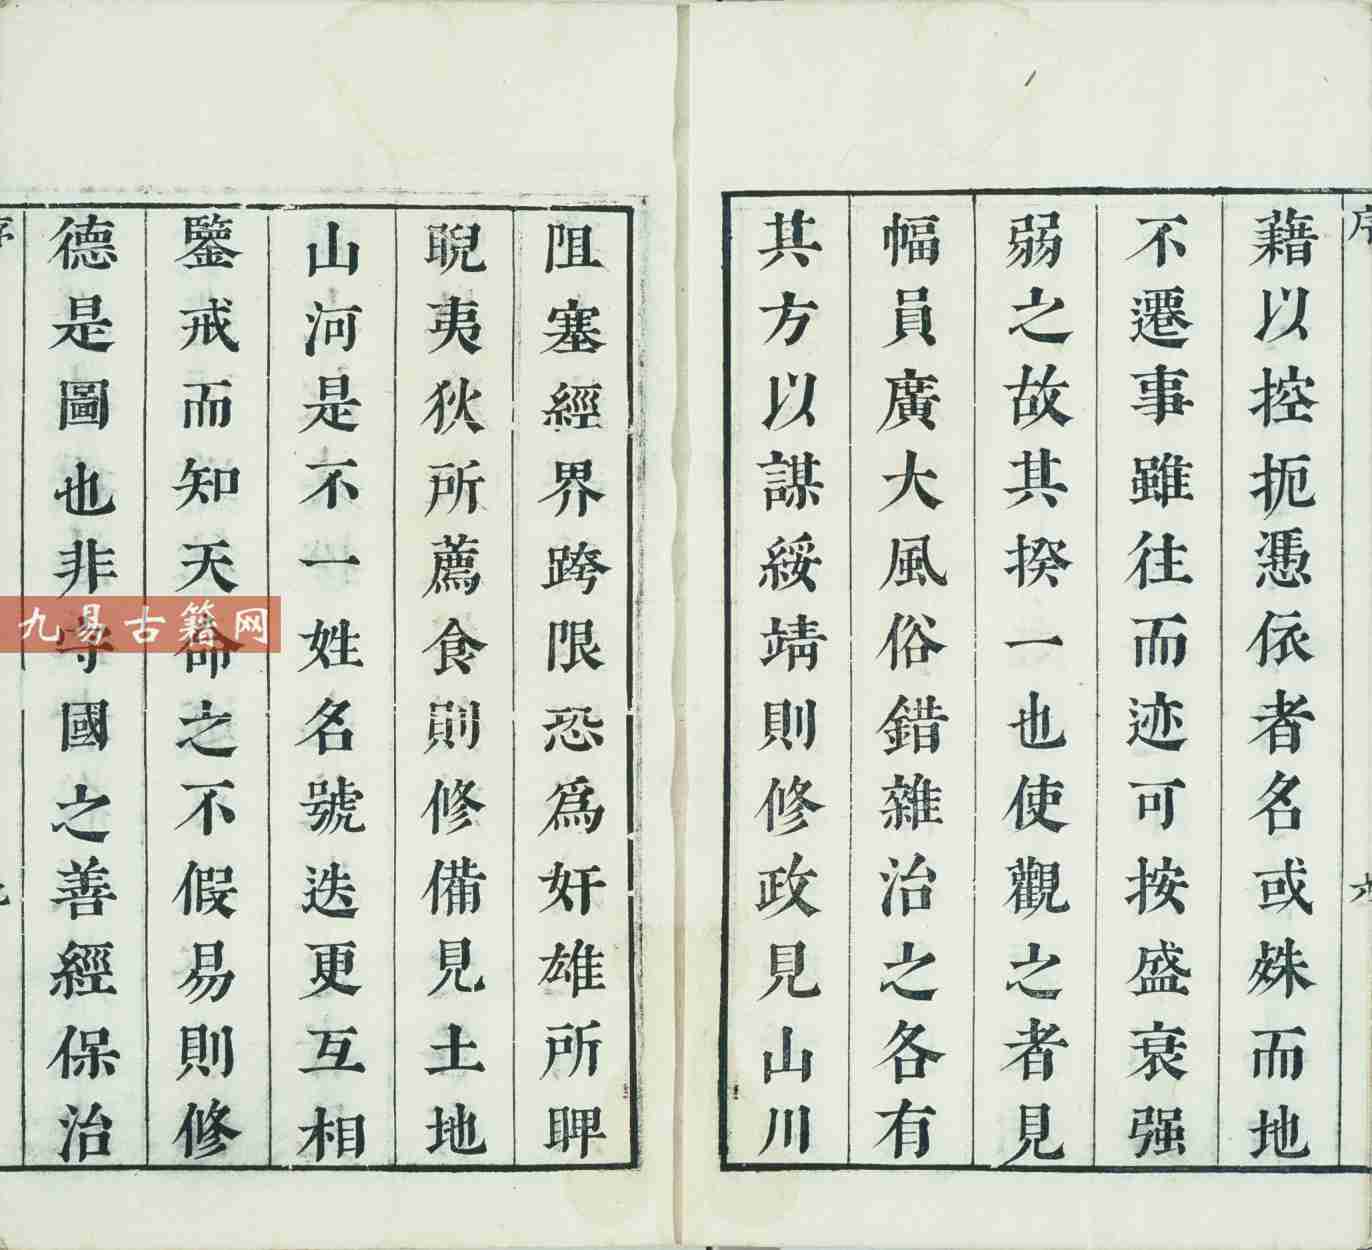 藉以控扼憑依者名或姝而地
不遷事雖往而迹可按盛衰强
弱之故其揆一也使觀之者見
幅員廣大風俗錯雜治之各有
其方以謀綏靖則修政見山川
阻塞經界跨限恐爲奸雄所睥
睨夷狄所薦食則修備見土地
山河是不一姓名號迭更互相
鑒戒而知天命之不假易則修
德是圖也非守國之善經保治
九易古籍网